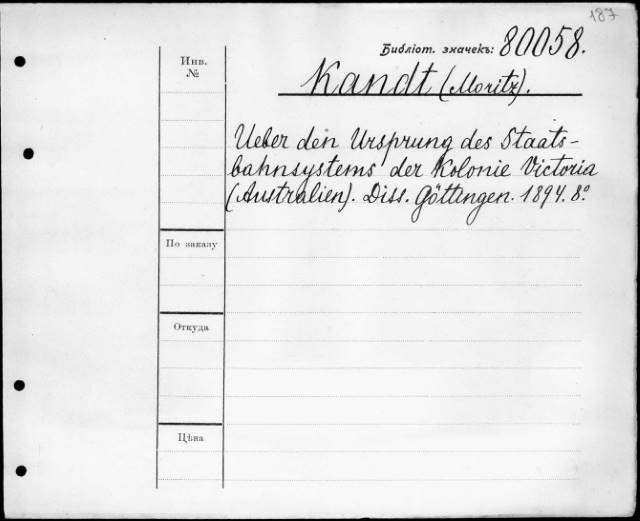 187
Библіот. значекъ: 80058.
Инв.
№
Kandt (Moritz).
Ueber den Ursprung des Staats-
bahnsystems der Kolonie Victoria
(Australien). Diss. Göttingen. 1894. 8º
По заказу
Откуда
Цѣна